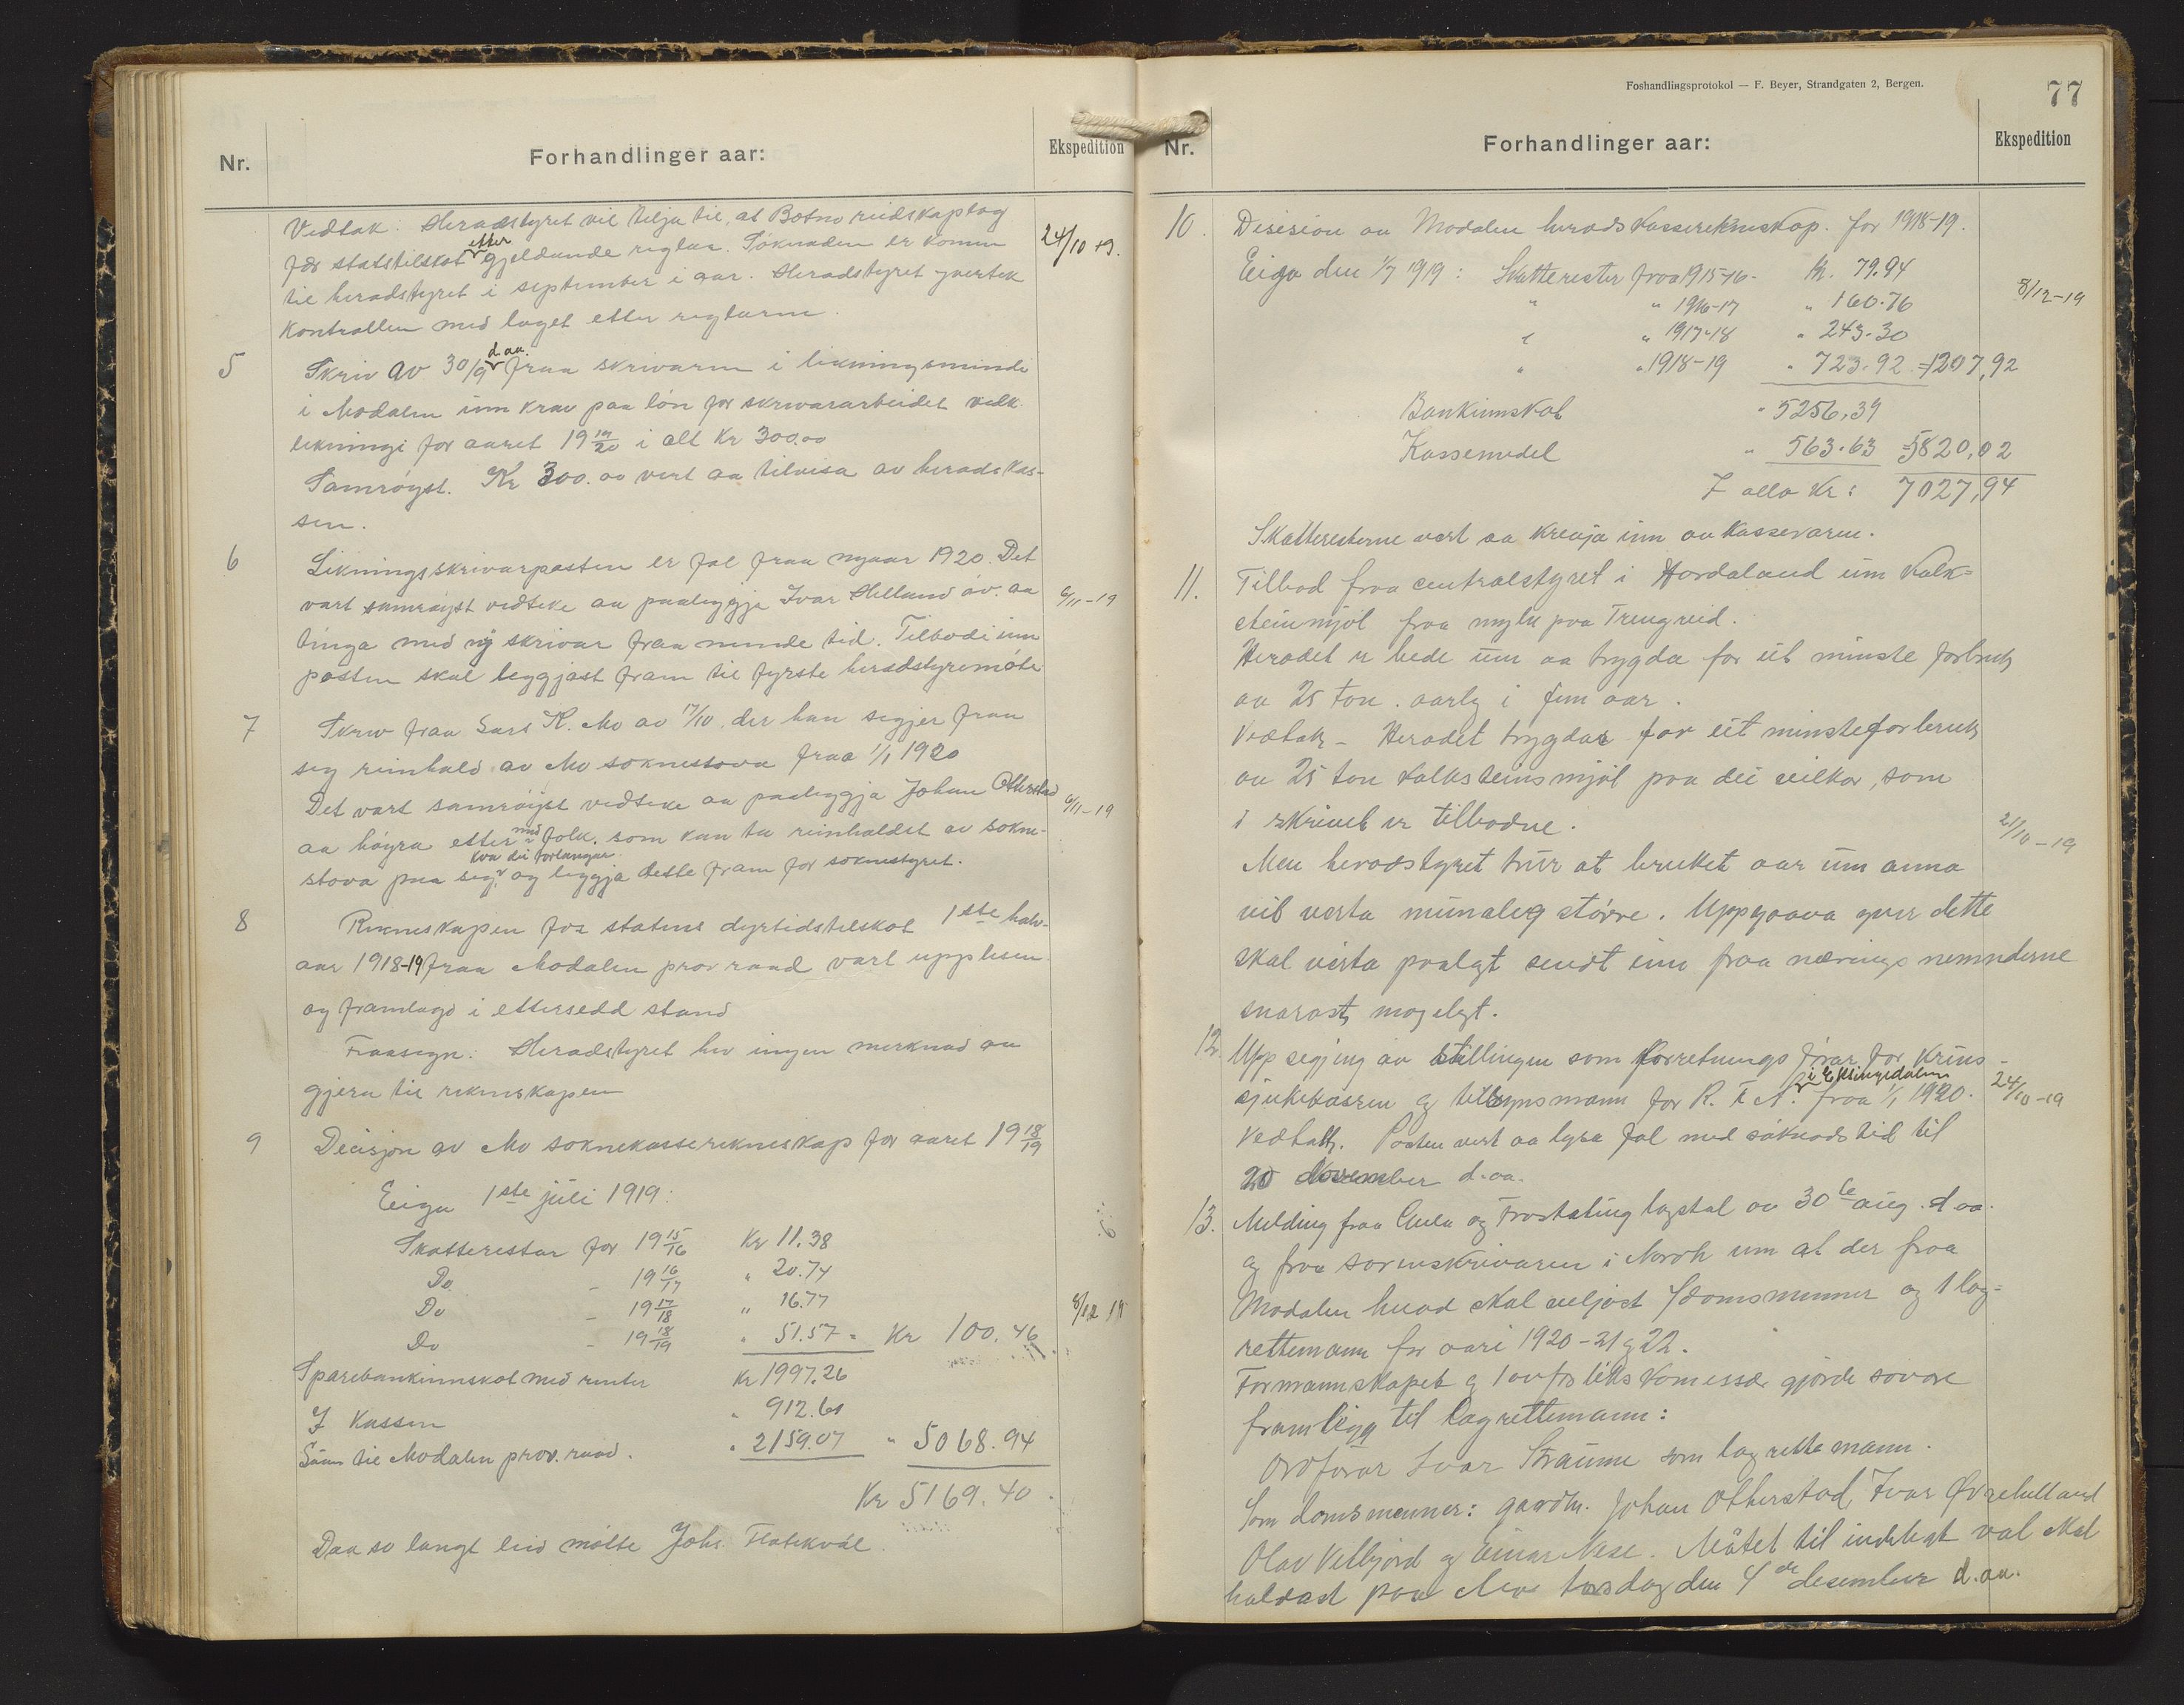 Nr. Forhandlinger aar: Ekspedition
Vedtak: Heradstyret vil tilja til, at Botno reidskaplag
fær statstilskot etter gjeldande reglar. Söknaden er komen
til heradstyret i september i aar. Heradstyret yvertek
kontrollen med laget etter reglarne.
24/10 19.
5 Skriv av 30/9 d. aa. fraa skrivaren i likningsnemndi
i Modalen um krav paa lön for skrivararbeidet vedk.
likningi for aaret 19 19/20 i alt Kr 300.00
Samröyst. Kr 300.00 vert aa tilvisa av heradskas-
sen.
6 Likningsskrivarposten er fal fraa nyaar 1920. Det
vart samröyst vedteke aa paaleggja Ivar Helland av. aa
tinga med ny skrivar fraa nemnde tid. Tilbodi um
posten skal leggjast fram til fyrste heradstyremöte
6/11-19
7 Skriv fraa Lars K. Mo av 17/10. der han segjer fraa
seg reinhald av Mo soknestova fraa 1/1 1920
Det vart samröyst vedteke aa paaleggja Johan Otterstad
aa höyra etter med folk, som kan ta reinhaldet av sokne-
stova paa seg, kva dei forlangar og leggja dette fram for soknestyret.
6/11-19
8 Rekneskapen for statens dyrtidstilskot 1ste halv-
aar 1918-19 fraa Modalen prov. raad vart upplesen
og framlagd i ettersedd stand
Fraasegn: Heradstyret hev ingen merknad aa
gjera til rekneskapen
9 Decisjon av Mo soknekasserekneskap for aaret 19 18/19
Eiga 1ste juli 1919:
Skatterestar for 19 15/16 Kr 11.38
Do - 19 16/17 " 20.74
Do - 19 17/18 " 16.77
Do - 19 18/19 " 51.57 = Kr 100.46
8/12 19
Sparebankinnskot med renter Kr 1997.26
I Kassen " 912.61
Lån til Modalen prov. raad. " 2159.07 " 5068.94
Kr 5169.40.
Daa so langt leid mötte Johs. Flatekvål.
Foshandlingsprotokol — F. Beyer, Strandgaten 2, Bergen.
77
Nr. Forhandlinger aar: Ekspedition
10. Desision av Modalen heradskasserekneskap. for 1918-19.
Eiga den 1/7 1919: Skatterester fraa 1915-16 - kr. 79.94
" " 1916-17 " 160.76
" " 1917-18 " 243.30
" " 1918-19 " 723.92 = 1207,92
8/12-19
Bankinnskot " 5256,39
Kassemedel " 563.63 = 5820,02
I alla Kr: 7027,94
Skatteresterne vert aa krevja inn av kassevaren.
11. Tilbod fraa centralstyret i Hordaland um kalk=
steinmjöl fraa mylu paa Trengreid.
Heradet er bede um aa trygda for eit minste forbruk
av 25 ton. aarleg i fem aar.
Vedtak - Heradet trygdar for eit minsteforbruk
av 25 ton kalksteinsmjöl paa dei vilkor, som
i skrivet er tilbodne.
Men heradstyret trur at bruket aar um anna
vil verta munaleg större. Uppgaava yver dette
skal verta paalagt sendt inn fraa næringsnemnderne
snarast mogelegt.
21/10-19
12. Uppsegjing av stillingen som forretningsförar for krins-
sjukekassen og tilsynsmann for R. T. A. i Eksingedalen fraa 1/1 1920.
Vedtak. Posten vert aa lysa fal med söknadstid til
20 November d. aa.
24/10-19
13. Melding fraa Gula og Frostating lagstol av 30te aug. d. aa.
og fraa sorenskrivaren i Nordh. um at der fraa
Modalen herad skal veljast 4 domsmenner og 1 lag-
rettemann for aari 1920-21 og 22.
Formannskapet og lensmannen gjorde sovore
framlegg til lagrettemann:
Ordförar Ivar Straume som lagrettemann.
Som domsmenner: gardbr. Johan Otterstad, Ivar Övrehelland
Olav Vetlejord og Einar Nese. Mötet til endelegt val skal
haldast paa Mo torsdag den 4de desember d. aa.